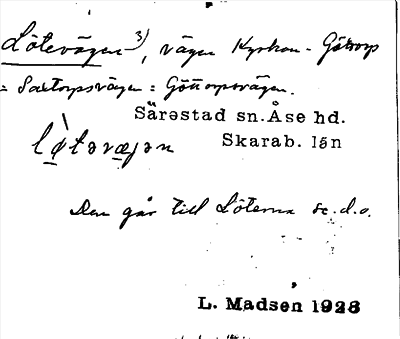 Lötevägen 3), vägen Kyrkan - Göttorp
= Saxtorpsvägen = Göttorpsvägen.
Särestad sn. Åse hd.
Skarab. län
Den går till Löterna se.d.o.
L. Madsen 1926